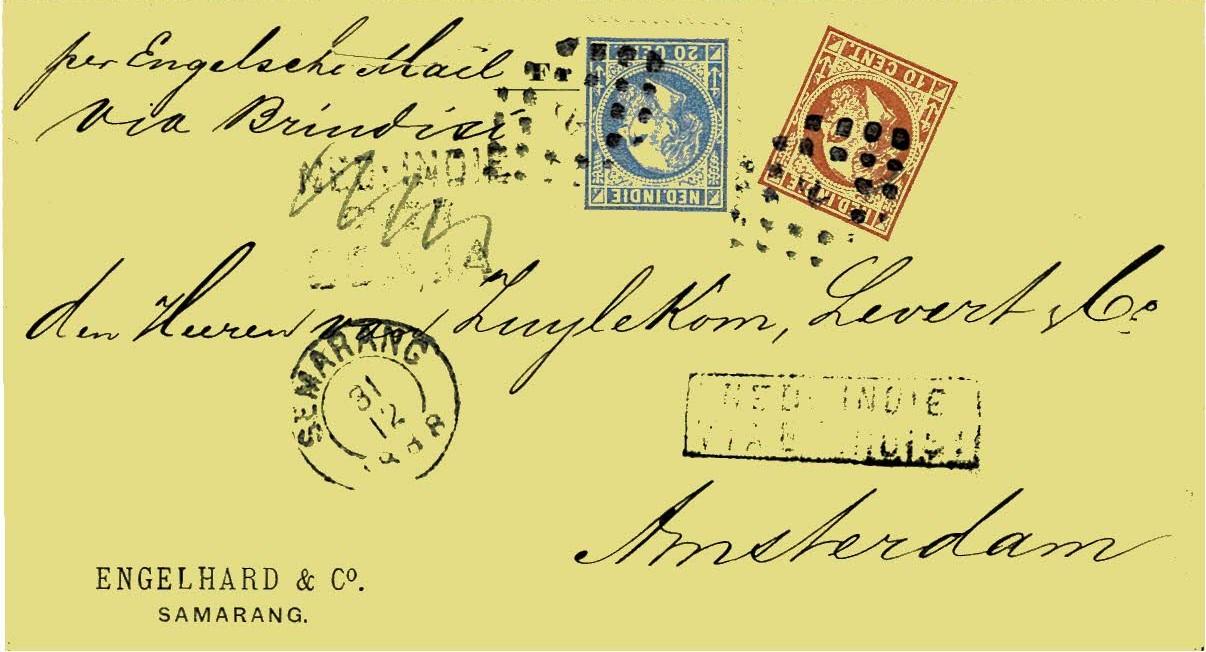 per Engelsche Mail
via Brindisi
Fr
20 CENT
NED. INDIE
10 CENT.
NED. INDIE
NED: INDIE
den Heeren van Zuylekom, Levert & Co
SEMARANG
31
12
NED. INDIE
VIA
Amsterdam
ENGELHARD & Co.
SAMARANG.